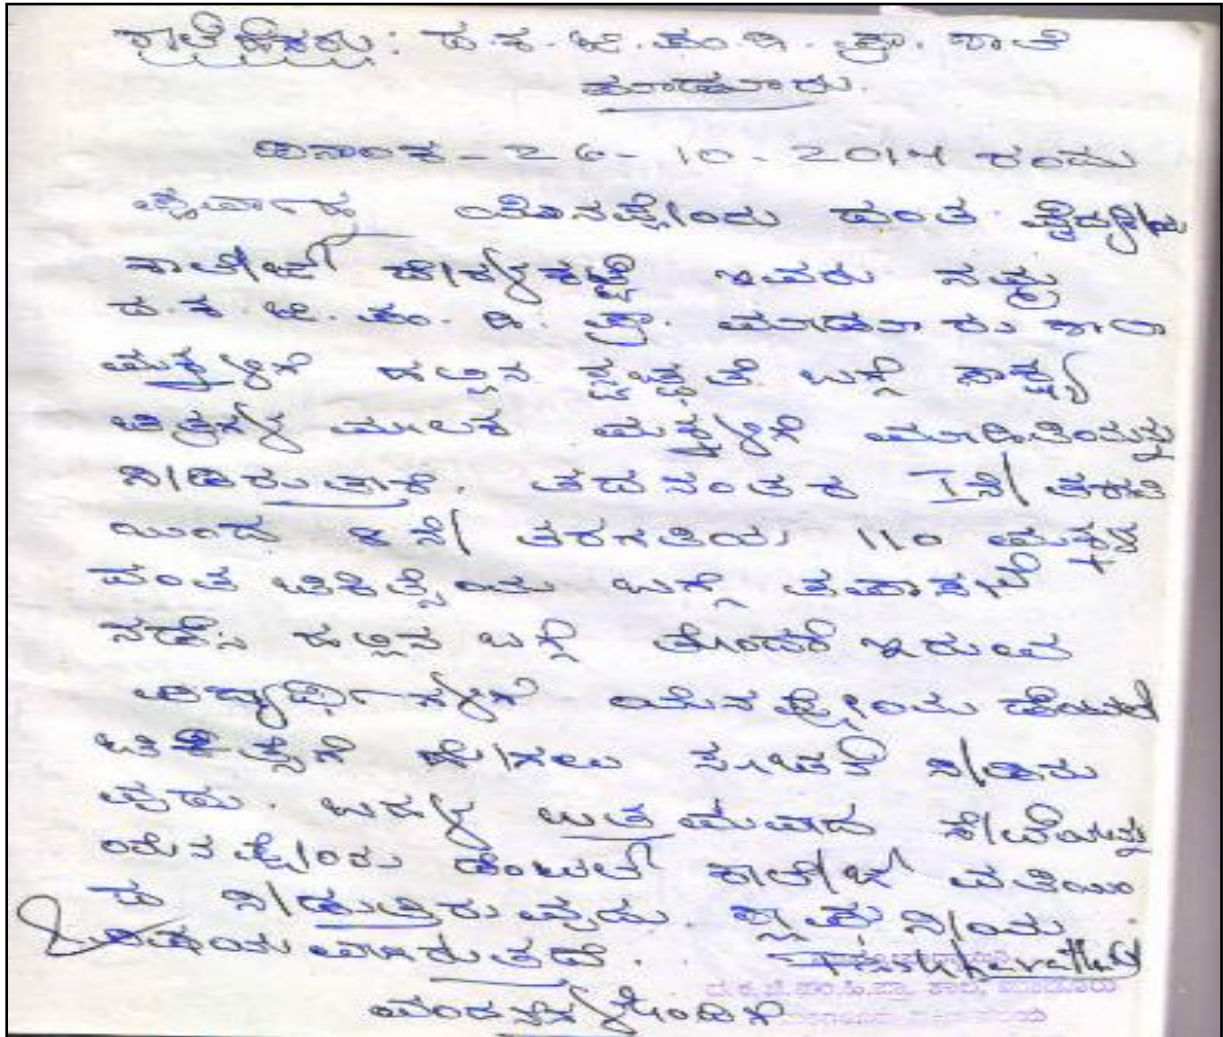 ಶಾಲೆ ಹೆಸರು: ದ.ಕ.ಜಿ.ಪಂ.ಹಿ.ಪ್ರಾ. ಶಾಲೆ
ಮಾಡೂರು.
ದಿನಾಂಕ - 26-10-2014 ರಂದು
ಪೂರ್ವಾಹ್ನ ಯೆನಪ್ಪೋಯ ದಂತ ವೈದ್ಯಕೀಯ
ಕಾಲೇಜ್ ಇವರು ನಮ್ಮ
ದ.ಕ.ಜಿ.ಪಂ.ಹಿ.ಪ್ರಾ. ಮಾಡೂರು ಶಾಲಾ
ಮಕ್ಕಳಿಗೆ ಹಲ್ಲಿನ ಸ್ವಚ್ಛತೆ ಬಗ್ಗೆ
ಚಿತ್ರಗಳ ಮೂಲಕ ಮಕ್ಕಳಿಗೆ ಮಾಹಿತಿಯನ್ನು
ನೀಡಿರುತ್ತಾರೆ. ತದನಂತರ Iನೇ ತರಗತಿ
ಯಿಂದ 8ನೇ ತರಗತಿಯ 110 ಮಕ್ಕಳ
ದಂತ ಚಿಕಿತ್ಸೆಯ ಬಗ್ಗೆ ತಪಾಸಣೆ
ನಡೆಸಿ ಹಲ್ಲಿನ ಬಗ್ಗೆ ತೊಂದರೆ ಇರುವ
ವಿದ್ಯಾರ್ಥಿಗಳಿಗೆ ಯೆನಪ್ಪೋಯ ಡೆಂಟಲ್
ಚಿಕಿತ್ಸೆಗೆ ಹೋಗಲು ಸೂಚನೆ ನೀಡಿರು
ವುದು. ಬಹಳ ಉತ್ತಮವಾದ ಸೇವೆಯನ್ನು
ಯೆನಪ್ಪೋಯ ಡೆಂಟಲ್ ಕಾಲೇಜ್ ವತಿಯಿಂ
ದ ನೀಡುತ್ತಿರುವುದು. ಶ್ಲಾಘನೀಯ
ವಿಷಯವಾಗಿರುತ್ತದೆ.
ದ.ಕ.ಜಿ.ಪಂ.ಹಿ.ಪ್ರಾ. ಶಾಲೆ, ಮಾಡೂರು
ವಂದನೆಗಳೊಂದಿಗೆ